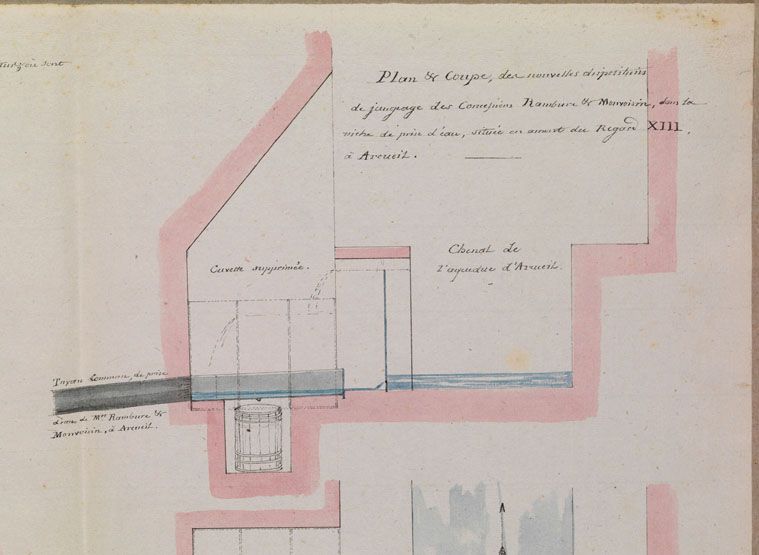 Plan & Coupe, des nouvelles dispositions
de jaugeage des Concessions Rambure & Monvoisin, dans la
niche de prise d'eau, située en amont du Regard XIII,
à Arcueil.
Cuvette supprimée.
Chenal de
l'aqueduc d'Arcueil.
Tuyau commun, de prise
d'eau de Mrs Rambure &
Monvoisin, à Arcueil.